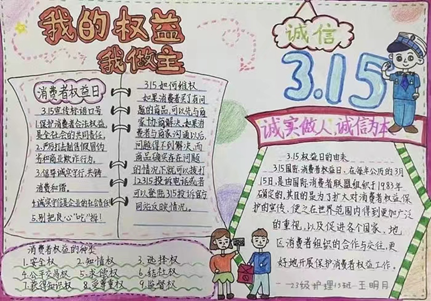 我的权益
我做主
诚信
3.15
消费者权益日
3.15宣传标语口号
1.保护消费者合法权益
是全社会的共同责任
2.严厉打击制假冒伪
劣和商业欺诈行为.
3.倡导诚实守信,共铸
消费和谐.
4.诚实守信是企业的社会责任
5.别把良心"吃"掉!
3.15如何维权
如果消费者买了有问
题的商品,可以先与商
家协商解决,如果消
费者与商家沟通以后,
问题得不到解决,而
商品确实存在问题
的情况下就可以拨打
12315投诉电话或者可
以登录315投诉官方
网站反映情况。
诚实做人,诚信为本
3.15权益日的由来
3.15国际消费者权益日,在每年公历的3月
15日,是由国际消费者联盟组织于1983年
确定的,其目的是为了扩大对消费者权益保
护的宣传,使之在世界范围内得到更加广泛
的重视,以及促进各个国家,地
区消费者组织的合作与交往,更
好地开展保护消费者权益工作。
23级护理13班-王明月
消费者权益的种类
1.安全权 2.知情权 3.选择权
4.公平交易权 5.求偿权 6.结社权
7.获得知识权 8.受尊重权 9.监督权